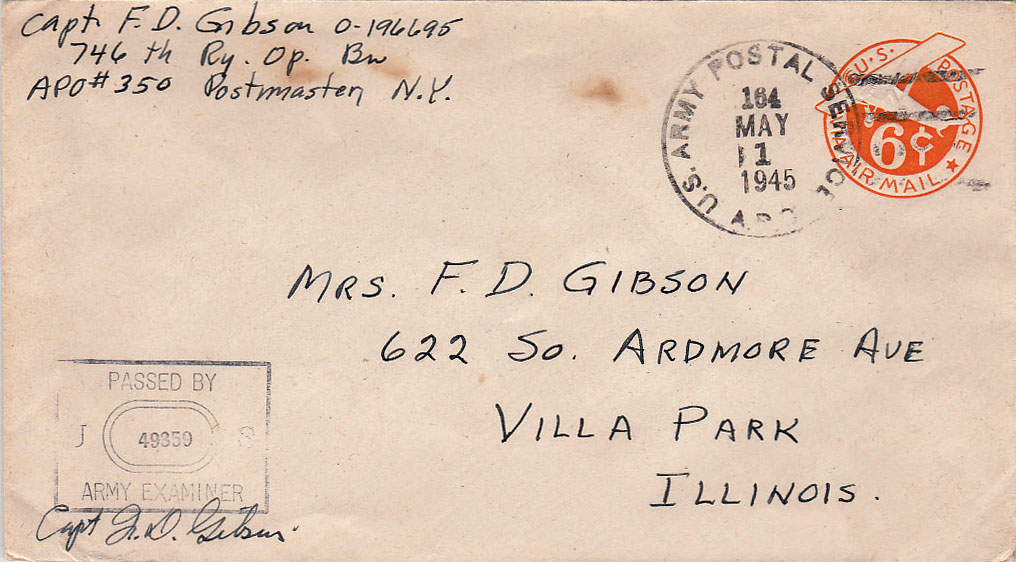 Capt. F. D. Gibson O-196695
746 th Ry. Op. Bn
APO #350 Postmaster, N.Y.
U.S. ARMY POSTAL SERVICE
164
MAY
1
1945
A.P.O.
U.S. POSTAGE
6¢
AIR MAIL
MRS. F. D. GIBSON
622 SO. ARDMORE AVE
VILLA PARK
ILLINOIS.
PASSED BY
49359
S
ARMY EXAMINER
Capt F. D. Gibson